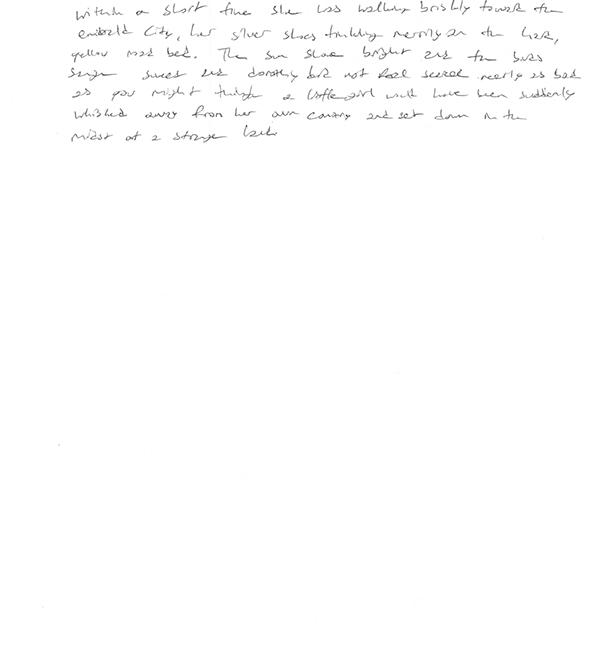 Within a short time she was walking briskly toward the
emerald City, her silver shoes tinkling merrily on the hard,
yellow road bed. The sun shone bright and the birds
sang sweet and dorothy did not feel scared nearly as bad
as you might think a little girl who have been suddenly
whisked away from her own country and set down in the
midst of a strange land